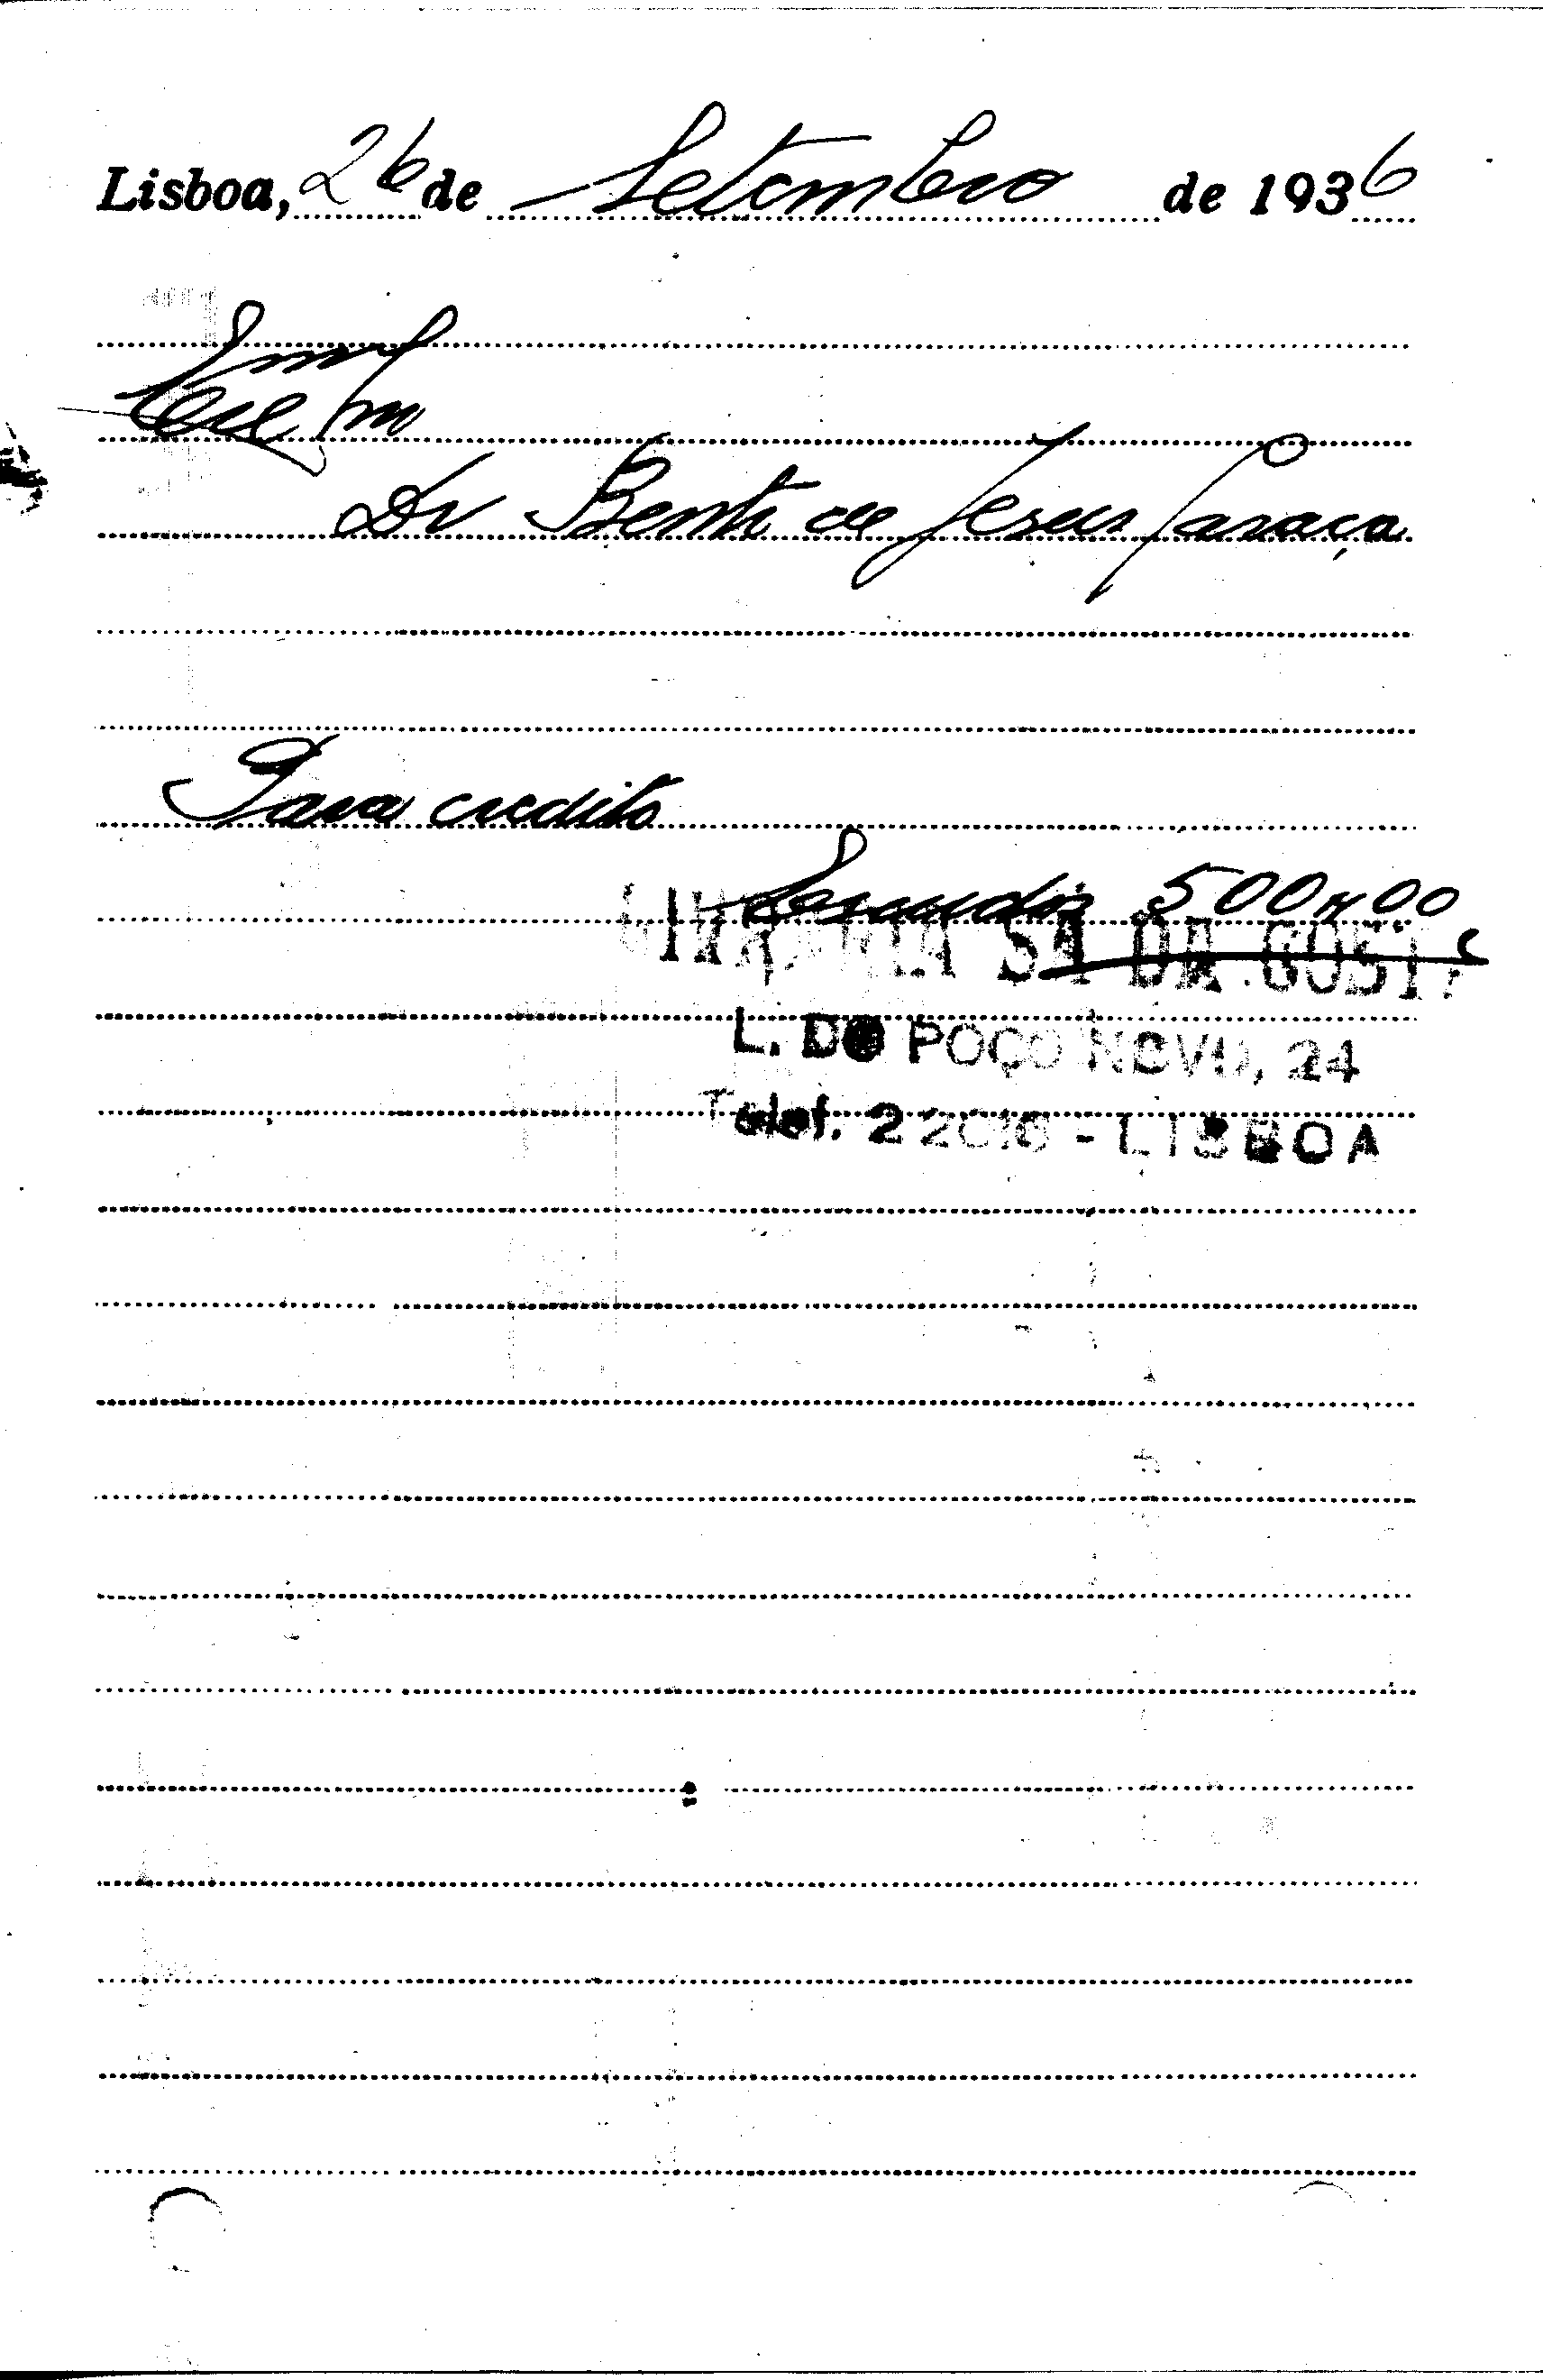 Lisboa, 26 de Setembro de 1936
Exmo
Dr Bento de Jesus Caraça
Para credito
Escudos 500$00
LIVRARIA SÁ DA COSTA
L. DO POÇO NOVO, 24
Telef. 2 - LISBOA